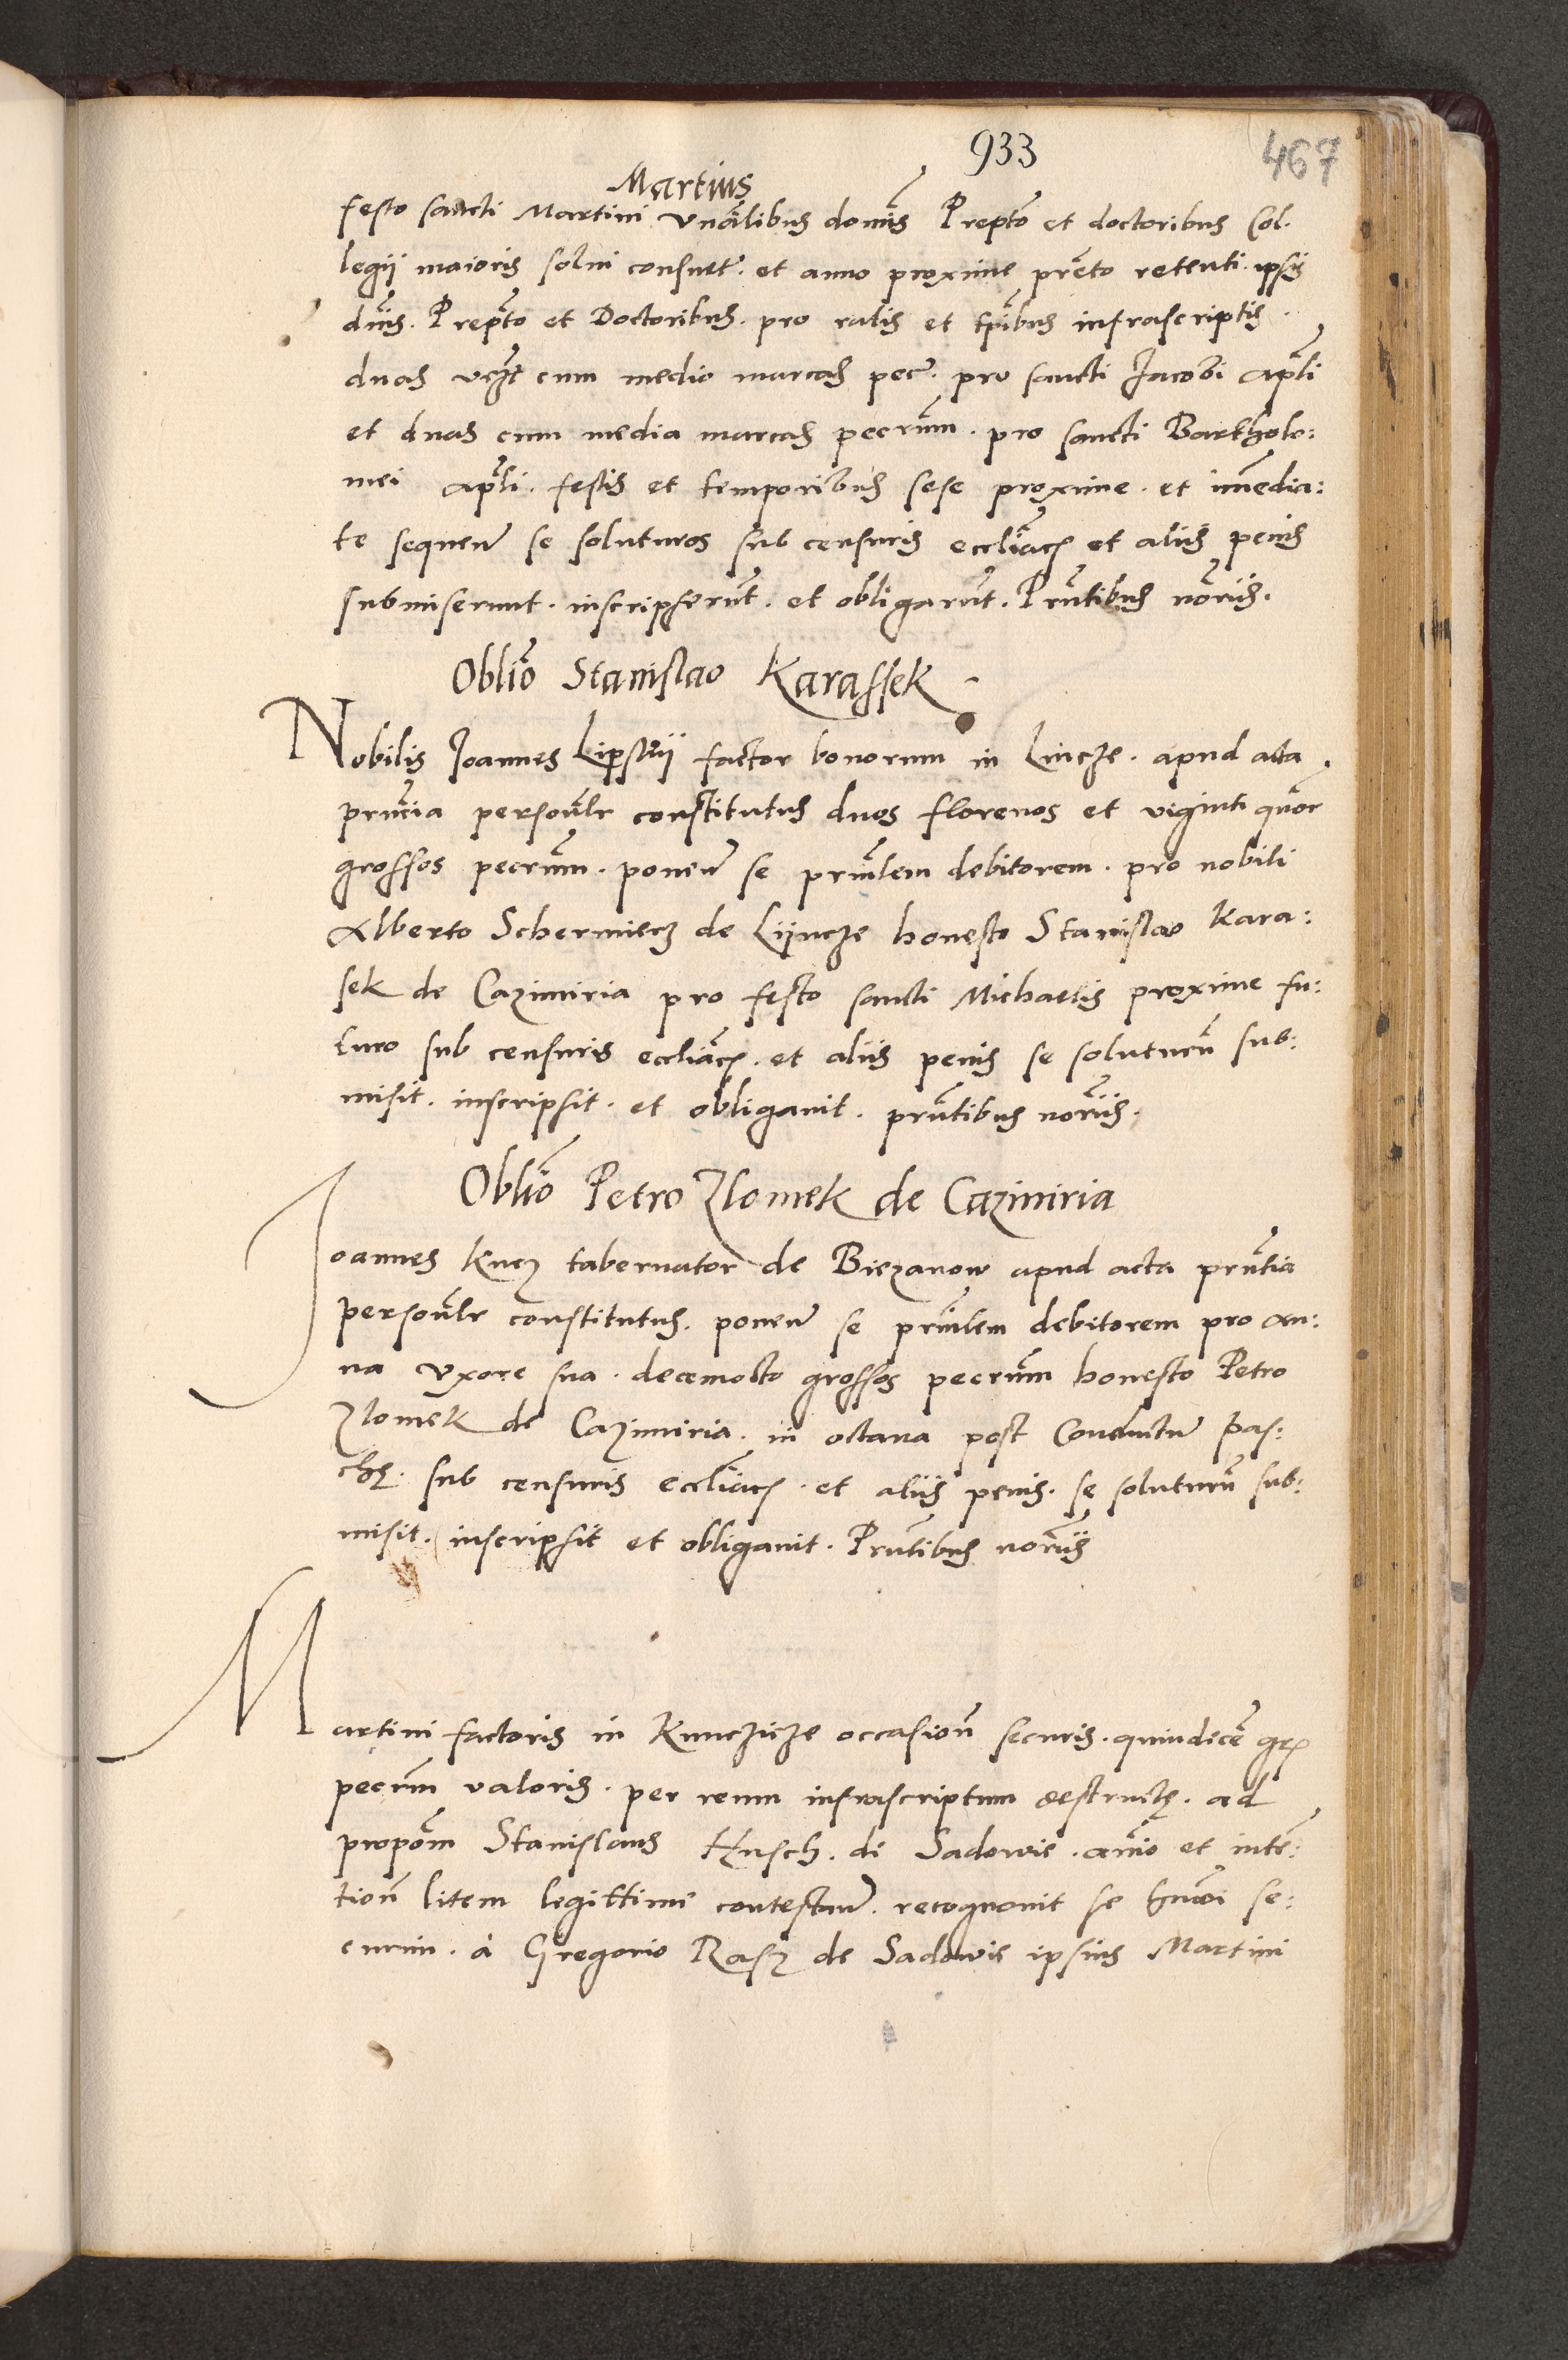 933
467
Martius
festo sancti Martini vnãlibus domĩs Prepto et doctoribus Col-
legii maioris solui consuet. et anno proxime prẽto retenti. ipsis
dnĩs. Prepto et Doctoribus. pro ratis et tpĩbus infrascriptis.
duas vczt cum media marcas pec. pro sancti Jacobi apłi
et duas cum media marcas pecrũm. pro sancti Bartholo:
mei apłi. festis et temporibus sese proxime. et imedia:
te sequen se soluturos sub censuris eccliacz et aliis penis
submiserunt. inscripserũt. et obligarũt. Prñtibus norĩis.
Oblĩo Stanislao Karassek
Nobilis Joannes Lipskii factor bonorum in Lincze. apud acta
prñtia persoñlr constitutus duos florenos et viginti qũor
grossos pecrũm. ponen se prinlem debitorem. pro nobili
Alberto Schermiecz de Lijncze honesto Stanislao Kara:
sek de Cazimiria pro festo sancti Michaelis proxime fu:
turo sub censuris eccliacz. et aliis penis se soluturũ sub:
misit. inscripsit. et obligauit. prñtibus norĩis.
Oblĩo Petro Zlomek de Cazimiria
Joannes Kucz tabernator de Biezanow apud acta prñtia
persoñlr constitutus. ponen se prinlem debitorem pro An:
na vxore sua. decemocto grossos pecrũm honesto Petro
Zlomek de Cazimiria. in octaua post Conductũ Pas:
chę. sub censuris eccliacz. et aliis penis. se soluturũ sub:
misit. inscripsit et obligauit. Prñtibus norĩis
Martini factoris in Kunczicze occasioñ securis. quindicẽ grz
pecrũm valoris. per reum infrascriptum destructę. ad
propoñm Stanislaus Husch. di Sadowie. aĩo et intẽ:
tioñ litem legittime contestan. recognouit se hm̃oi se:
curim. à Gregorio Rasz de Sadowie ipsius Martini